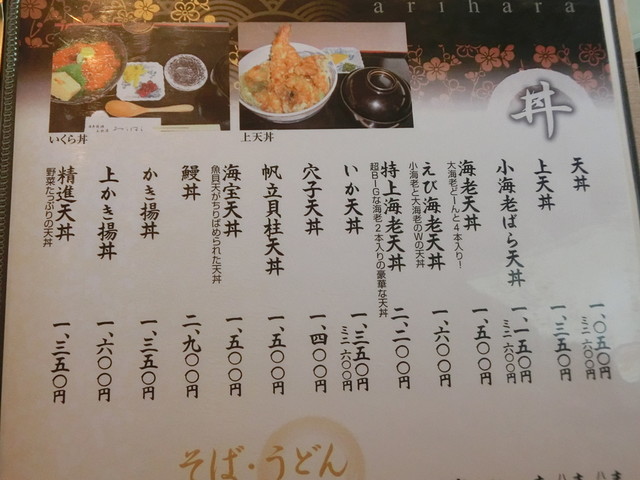 arihara
いくら丼
上天丼
丼
天丼
一、〇五〇円
ミニ六〇〇円
上天丼
一、三五〇円
小海老ばら天丼
一、一五〇円
ミニ六〇〇円
海老天丼
大海老どーんと4本入り!
一、五〇〇円
えび海老天丼
小海老と大海老のWの天丼
一、六〇〇円
特上海老天丼
超BIGな海老2本入りの豪華な天丼
二、二〇〇円
いか天丼
一、三五〇円
ミニ六〇〇円
穴子天丼
一、四〇〇円
帆立貝柱天丼
一、五〇〇円
海宝天丼
魚貝天がちりばめられた天丼
一、五〇〇円
鰻丼
二、九〇〇円
かき揚丼
一、三五〇円
上かき揚丼
一、六〇〇円
精進天丼
野菜たっぷりの天丼
一、三五〇円
そば・うどん